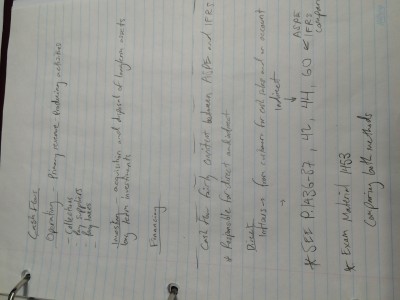 Cash Flow
Operating - Primary revenue producing activities
- Collections
- Pay suppliers
- Pay
Investing - acquisition and disposal of longterm assets
Long term investments
Financing
Cash Flow fairly consistent between ASPE and IFRS
* Responsible for direct and indirect
Direct
from customer for cash sales and on account
Indirect
ASPE
IFRS
* SEE P.1436-37, 42, 44, 60
* Exam Material 1453
Comparing both methods